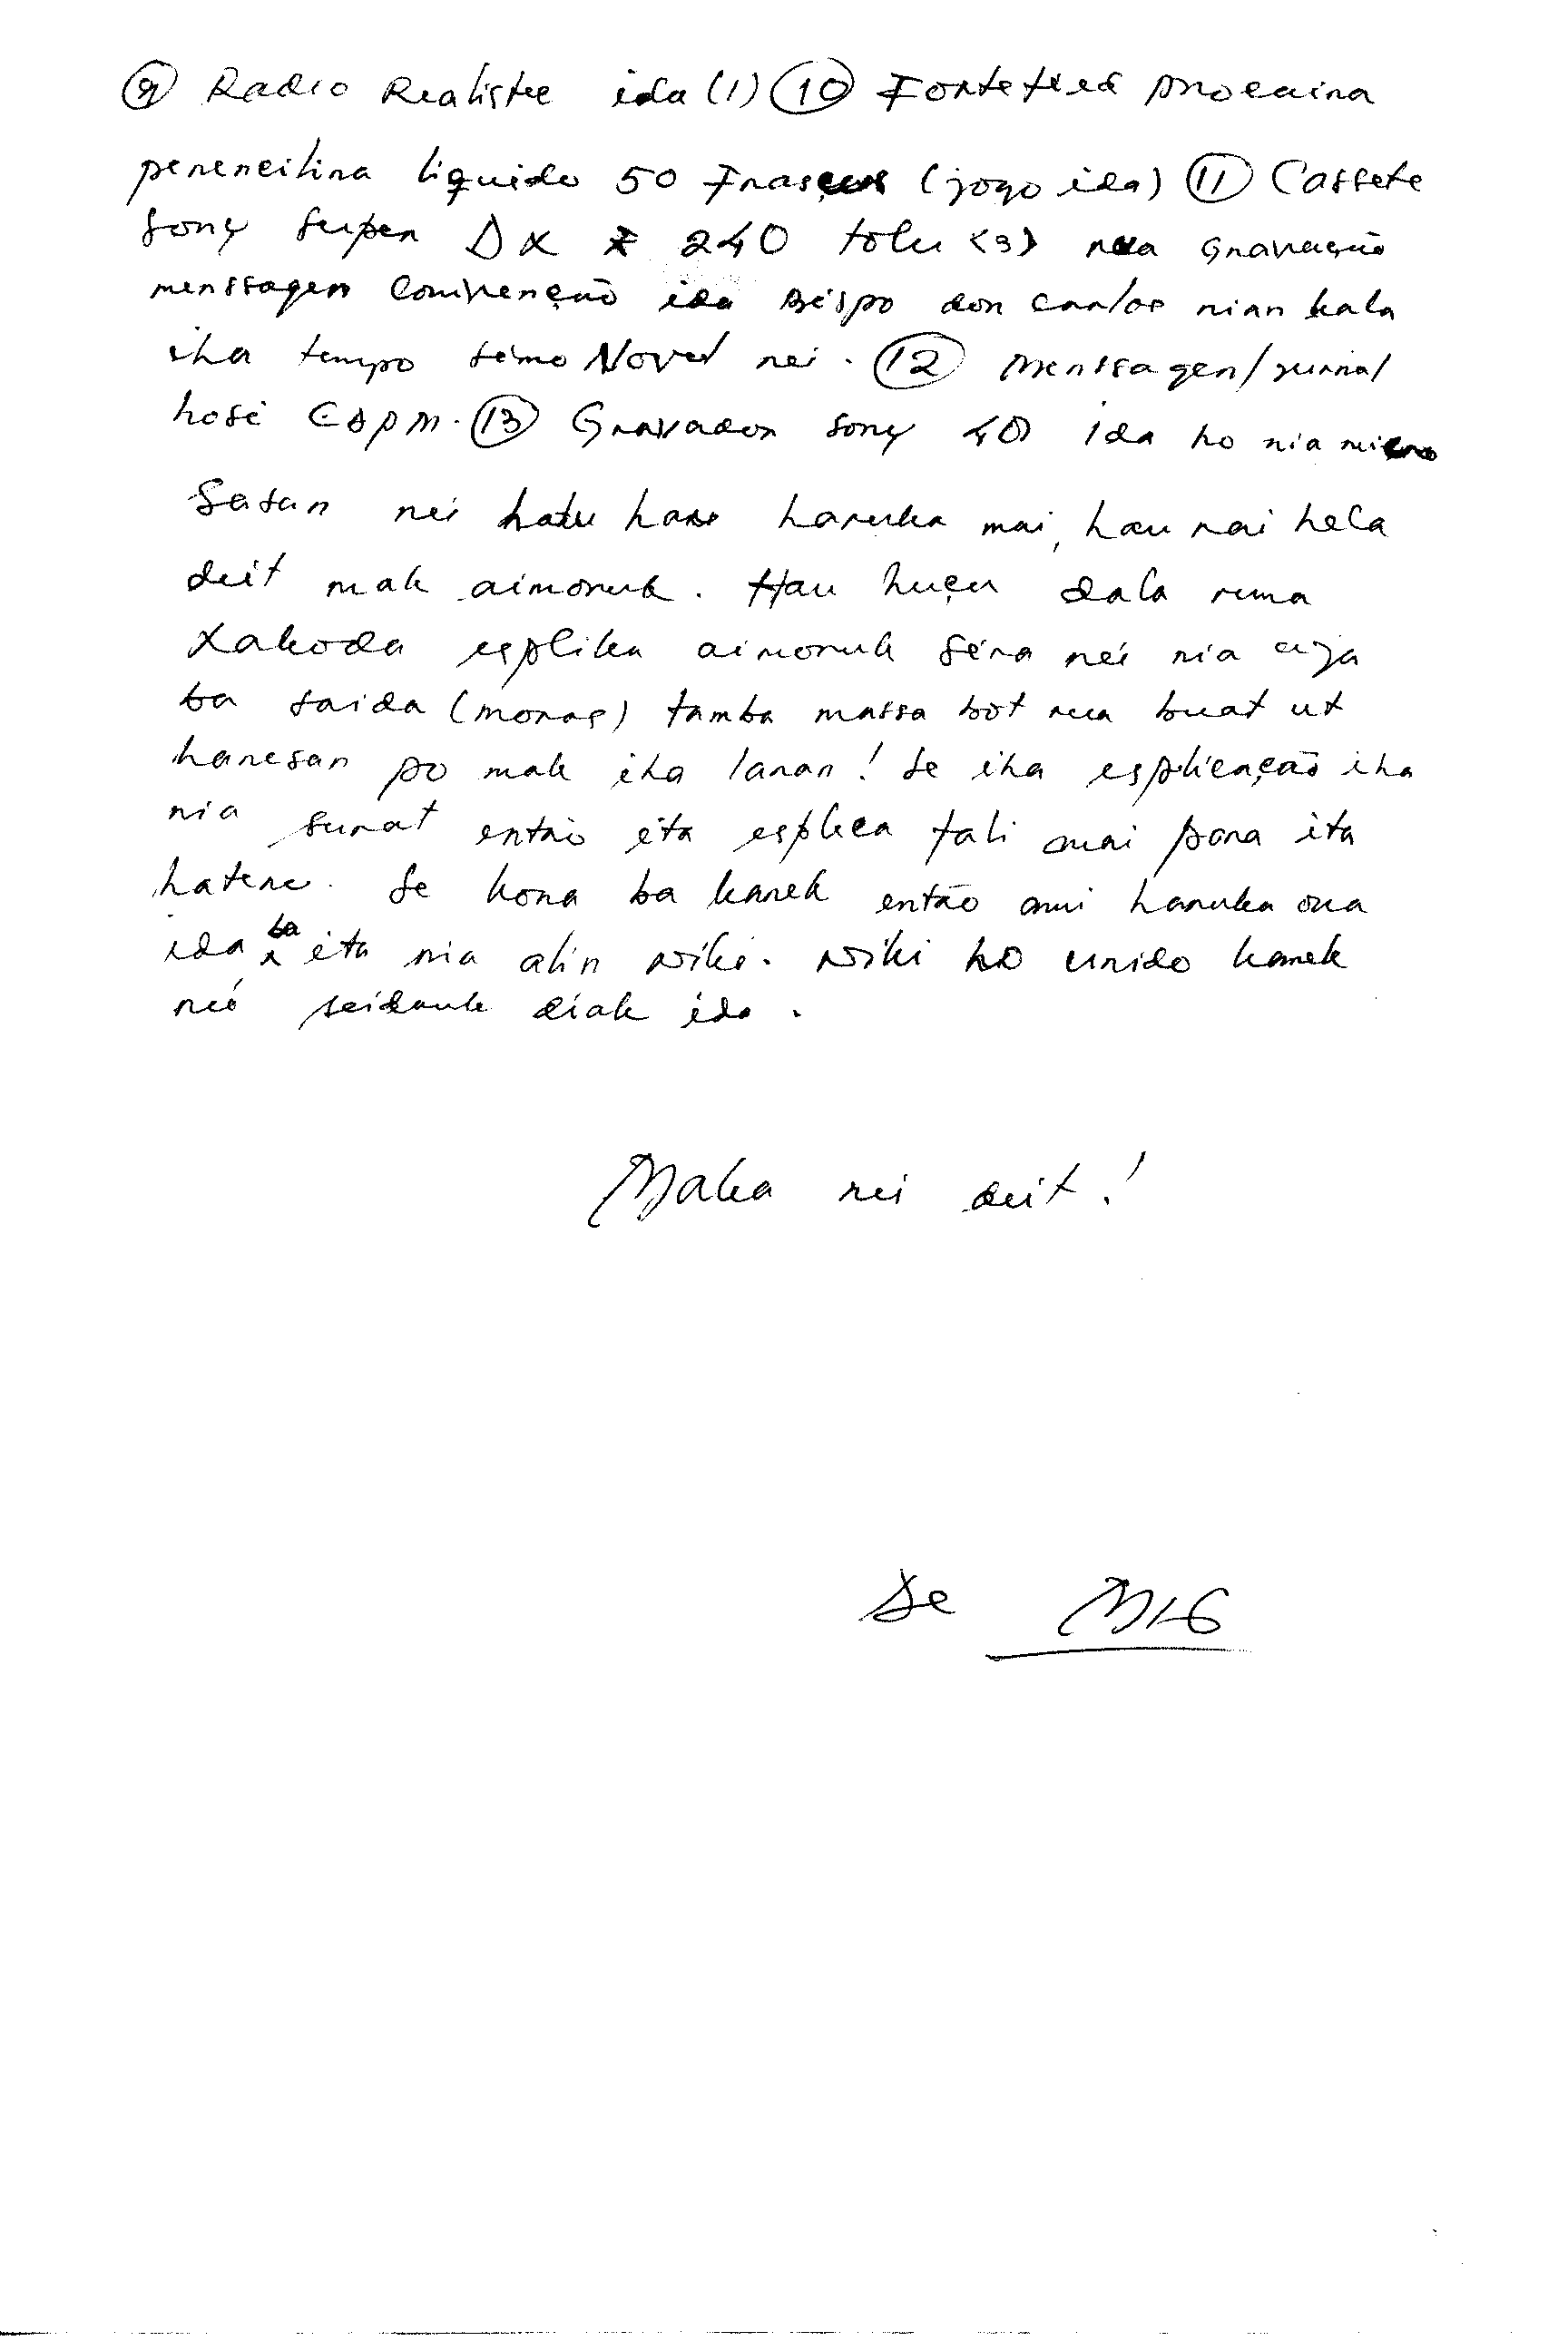 ⑨ Radio Realistec ida (1) ⑩ Fortefied procaina
peneneilina liquido 50 Frascus (jogo ida) ⑪ Cassete
Sony Super DX 240 tolu (3) nia Gravação
menssagen Comvenção ida Bispo don Carlos nian kala
iha tempo simo Novel nei. ⑫ Menssagen/jurnal
hosi CDPM. ⑬ Gravador Sony 40 ida ho nia micro
Sasan nei hanuka mai, hau rai hela
deit mak aimoruk. Hau huçu dala ruma
Xakoda esplika aimoruk sira nei nia uja
ba saida (moras) tamba massa bot rua buat ut
hanesan po mak iha laran! Se iha esplicação iha
nia surat então ita esplica fali mai para ita
hatene. Se kona ba kanek então mui haruka oua
ida ba ita nia alin Wiki. Wiki ho unido kanek
nei seidauk diak ida.
Maka nei deit!
De